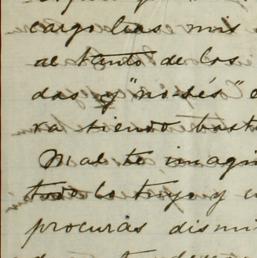 cargo las mis
al tanto de los
das y "no-sés"
va siendo bast
Mal te imagin
todo lo tuyo y
procuras dismi